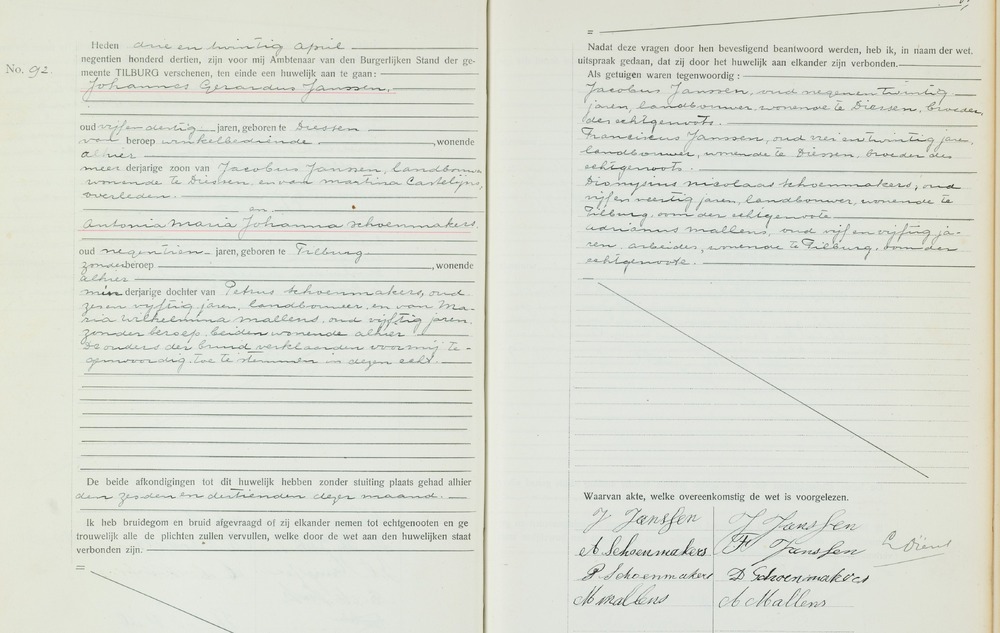 No. 92.
Heden drie en twintig april
negentien honderd dertien, zijn voor mij Ambtenaar van den Burgerlijken Stand der ge-
meente TILBURG verschenen, ten einde een huwelijk aan te gaan:
Johannes Gerardus Janssen,
oud vijf en dertig jaren, geboren te Diessen
van beroep winkelbediende, wonende
alhier
meer derjarige zoon van Jacobus Janssen, landbouwer
wonende te Diessen, en van Martina Castelijns,
overleden.
en
Antonia Maria Johanna Schoenmakers.
oud negentien jaren, geboren te Tilburg
zonder beroep, wonende
alhier
min derjarige dochter van Petrus Schoenmakers, oud
zes en vijftig jaren, landbouwer, en van Ma-
ria Wilhelmina Mallens, oud vijftig jaren,
zonder beroep, beiden wonende alhier
De ouders der bruid verklaarden voor mij te-
genwoordig, toe te stemmen in dezen echt.
De beide afkondigingen tot dit huwelijk hebben zonder stuiting plaats gehad alhier
den zesden en dertienden dezer maand.
Ik heb bruidegom en bruid afgevraagd of zij elkander nemen tot echtgenooten en ge
trouwelijk alle de plichten zullen vervullen, welke door de wet aan den huwelijken staat
verbonden zijn.
=
=
Nadat deze vragen door hen bevestigend beantwoord werden, heb ik, in naam der wet,
uitspraak gedaan, dat zij door het huwelijk aan elkander zijn verbonden.
Als getuigen waren tegenwoordig:
Jacobus Janssen, oud negen en twintig
jaren, landbouwer, wonende te Diessen, broeder
des echtgenoots.
Franciscus Janssen, oud zes en twintig jaren,
landbouwer, wonende te Diessen, broeder des
echtgenoots.
Dionysius Nicolaas Schoenmakers, oud
vijf en veertig jaren, landbouwer, wonende te
Tilburg, oom der echtgenoote
Adrianus Mallens, oud vijf en vijftig ja-
ren, arbeider, wonende te Tilburg, oom der
echtgenoote.
Waarvan akte, welke overeenkomstig de wet is voorgelezen.
J Janssen
J Janssen
A Schoenmakers
F Janssen
P Schoenmakers
D Schoenmakers
M Mallens
A Mallens